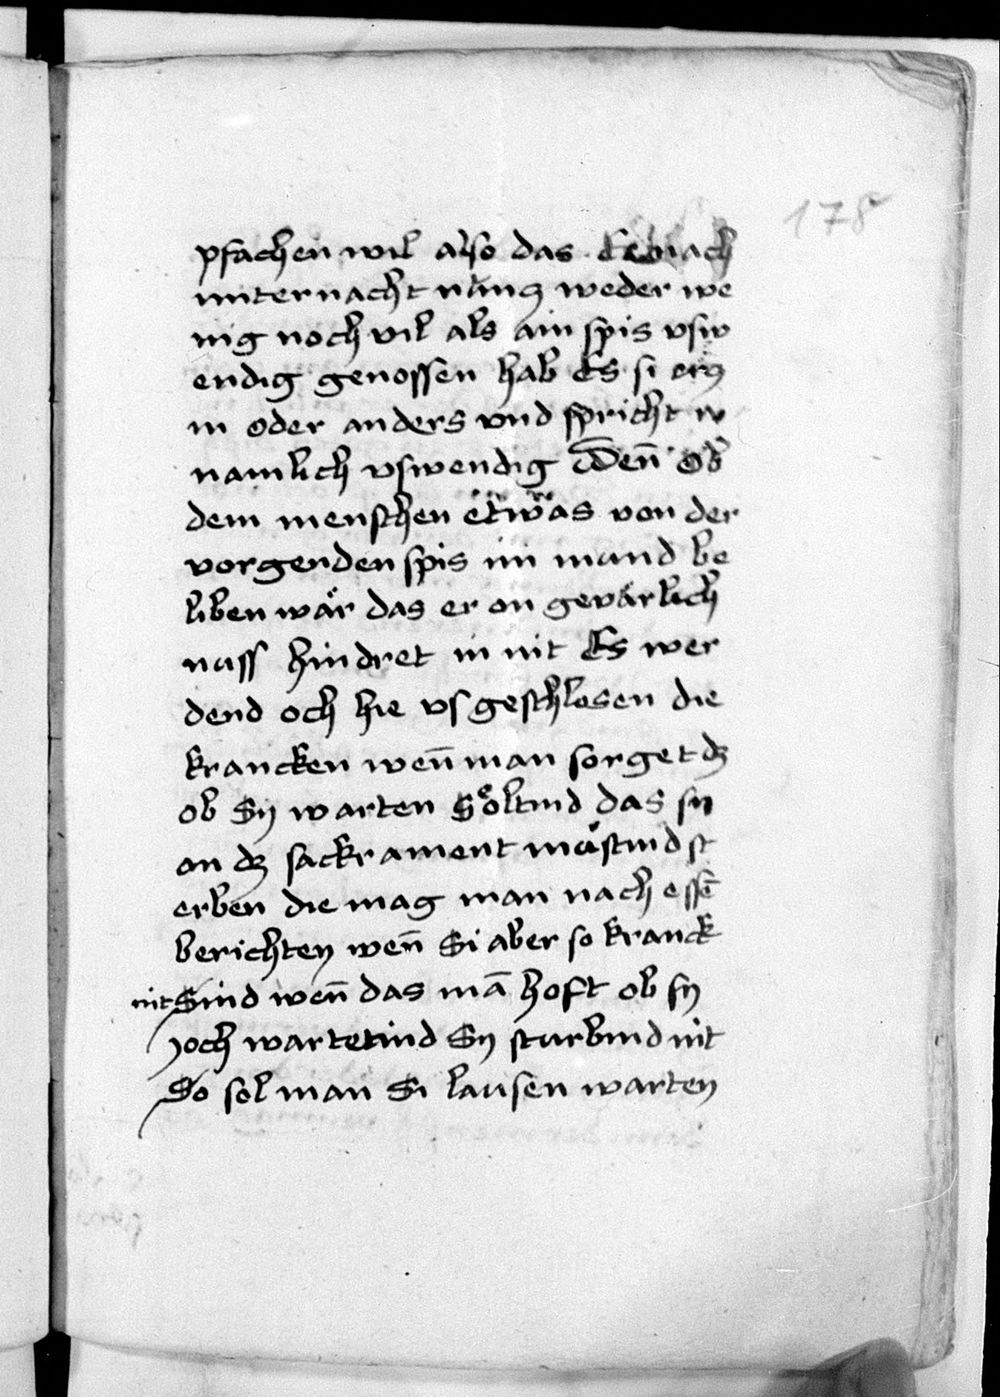 178
pfachen wil also das Er nach
mitternacht nüntz weder we
nig noch vil als ain spis vsw
endig genossen hab Es si
in oder anders vnd spricht
namlich vswendig Wen̄ Ob
dem menschen ettwas von der
vorgenden spis im mund be
liben wär das er on gevärlich
nuss hindret in nit Es wer
dend och hie vsgeschlosen die
krancken wen̄ man sorget dz
ob Sy warten Söltind das sy
on dz sackrament müstind st
erben die mag man nach essē
berichten wen̄ Si aber so kranck
nit Sind wen̄ das mā hoft ob sy
joch wartetind Sy sturbind nit
So sol man Si lausen warten